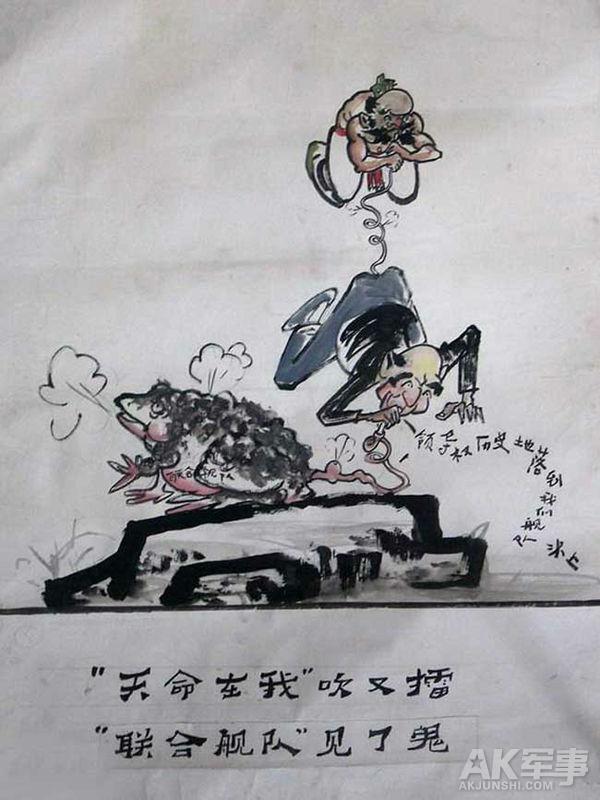 联合舰队
领导权历史地落到我们舰队头上
"天命在我"吹又擂
"联合舰队"见了鬼
AK军事
AKJUNSHI.COM